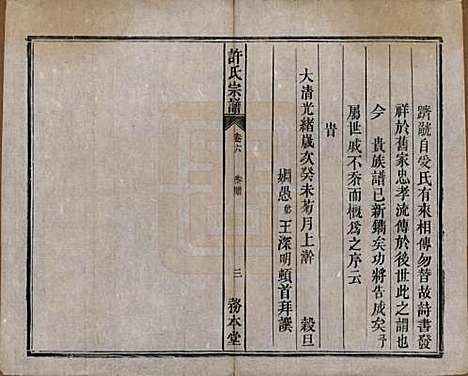 躋虢自爰氏有來相傳勿替故詩書發
祥於舊家忠孝流傳於後世此之謂也
今　貴族譜已新鐫矣功將告成矣予
屬世戚不忝而概為之序云
峕
大清光緒歲次癸未菊月上澣　穀旦
姻愚弟王深明頓首拜譔
許氏宗譜
卷六
三
務本堂